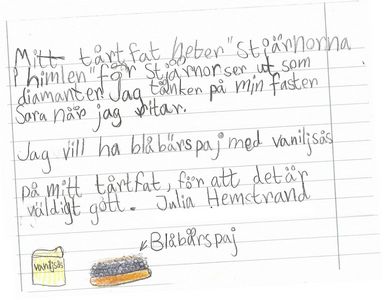 Mitt tårtfat heter "Stjärnorna
i himlen" för Stjärnor ser ut som
diamanter. Jag tänker på min faster
Sara när jag ritar.
Jag vill ha blåbärspaj med vaniljsås
på mitt tårtfat, för att det är
väldigt gott. Julia Hemstrand
Blåbärspaj
vaniljsås